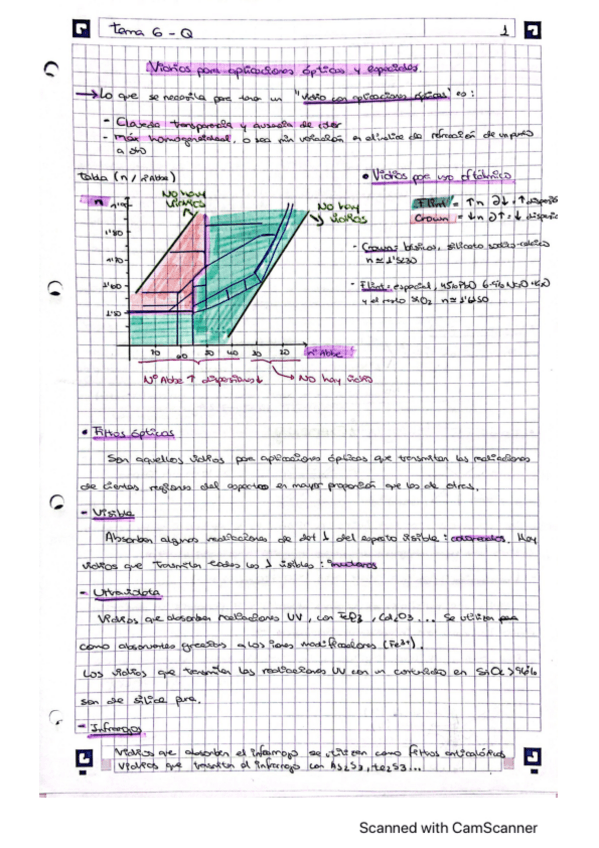 Tema 6 - Q
1
Vidrios para aplicaciones ópticas y especiales
Lo que se necesita para tener un "vidrio con aplicaciones ópticas" es:
- Claveda transparencia y ausencia de color
- Máx homogeneidad, o sea min variación en el índice de refracción de un punto
a otro
tabla (n /
• Vidrios para uso oftálmico
n
No hay
vidrios
No hay
vidrios
Flint = ↑n ∂↓, ↑
Crown = ↓n ∂↑ ↓
1'80
1'70
1'60
1'50
- Crown: silicato
n ≃ 1'5230
- Flint: especial, 45% PbO
y el resto n ≃
70 60 50 40 30 20
nº Abbe
Nº Abbe ↑ dispersion↓
No hay vidrio
• Filtros ópticos
Son aquellos vidrios para aplicaciones ópticas que transmiten las radiaciones
de ciertas regiones del espectro en mayor proporción que las de otras.
- Visible
Absorben algunas radiaciones de del visible: coloreados. Hay
vidrios que transmiten todas las visibles: incoloros
- Ultravioleta
Vidrios que absorben radiaciones UV, con ... Se utilizan para
como absorbentes gracias a los iones modificadores (Fe³⁺).
Los vidrios que transmiten las radiaciones UV con un contenido en SiO₂ > 96%
son de sílice pura.
- Infrarrojos
Vidrios que absorben el infrarrojo se utilizan como filtros anticalóricos
Vidrios que transmiten el infrarrojo con As₂S₃, ...
Scanned with CamScanner